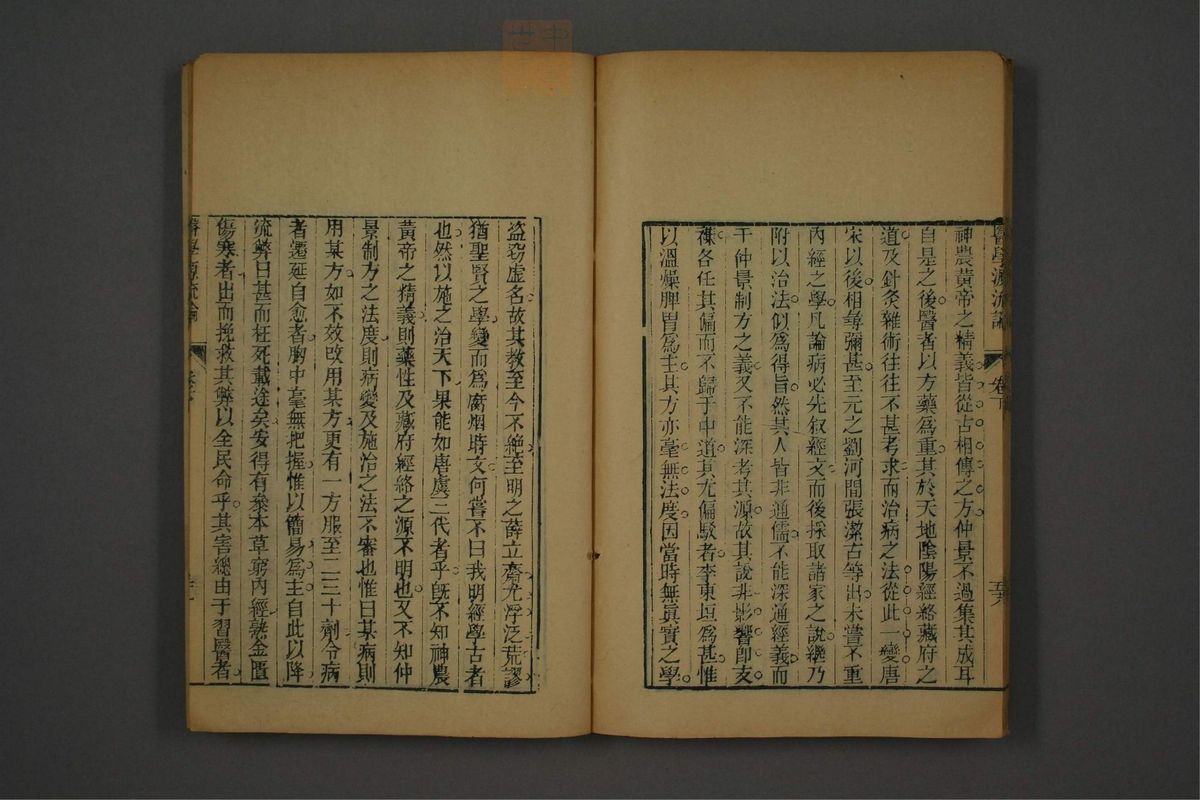 醫學源流論 卷下
神農黃帝之精義皆從古相傳之方仲景不過集其成耳
自是之後醫者以方藥爲重其於天地陰陽經絡藏府之
道及針灸雜術往往不甚考求而治病之法從此一變唐
宋以後相尋彌甚至元之劉河間張潔古等出未嘗不重
內經之學凡論病必先叙經文而後採取諸家之說繼乃
附以治法似爲得旨然其人皆非通儒不能深通經義而
于仲景制方之義又不能深考其源故其說非影響卽支
離各任其偏而不歸于中道其尤偏駁者李東垣爲甚惟
以溫燥脾胃爲主其方亦毫無法度因當時無眞實之學
盜竊虛名故其教至今不絶至明之薛立齋尤浮泛荒謬
猶聖賢之學變而爲腐烟時文何嘗不曰我明經學古者
也然以施之治天下果能如唐虞三代者乎旣不知神農
黃帝之精義則藥性及藏府經絡之源不明也又不知仲
景制方之法度則病變及施治之法不審也惟曰某病則
用某方如不效改用某方更有一方服至二三十劑令病
者遷延自愈者胸中毫無把握惟以簡易爲主自此以降
流弊日甚而枉死載途矣安得有參本草窮內經熟金匱
傷寒者出而挽救其弊以全民命乎其害總由于習醫者